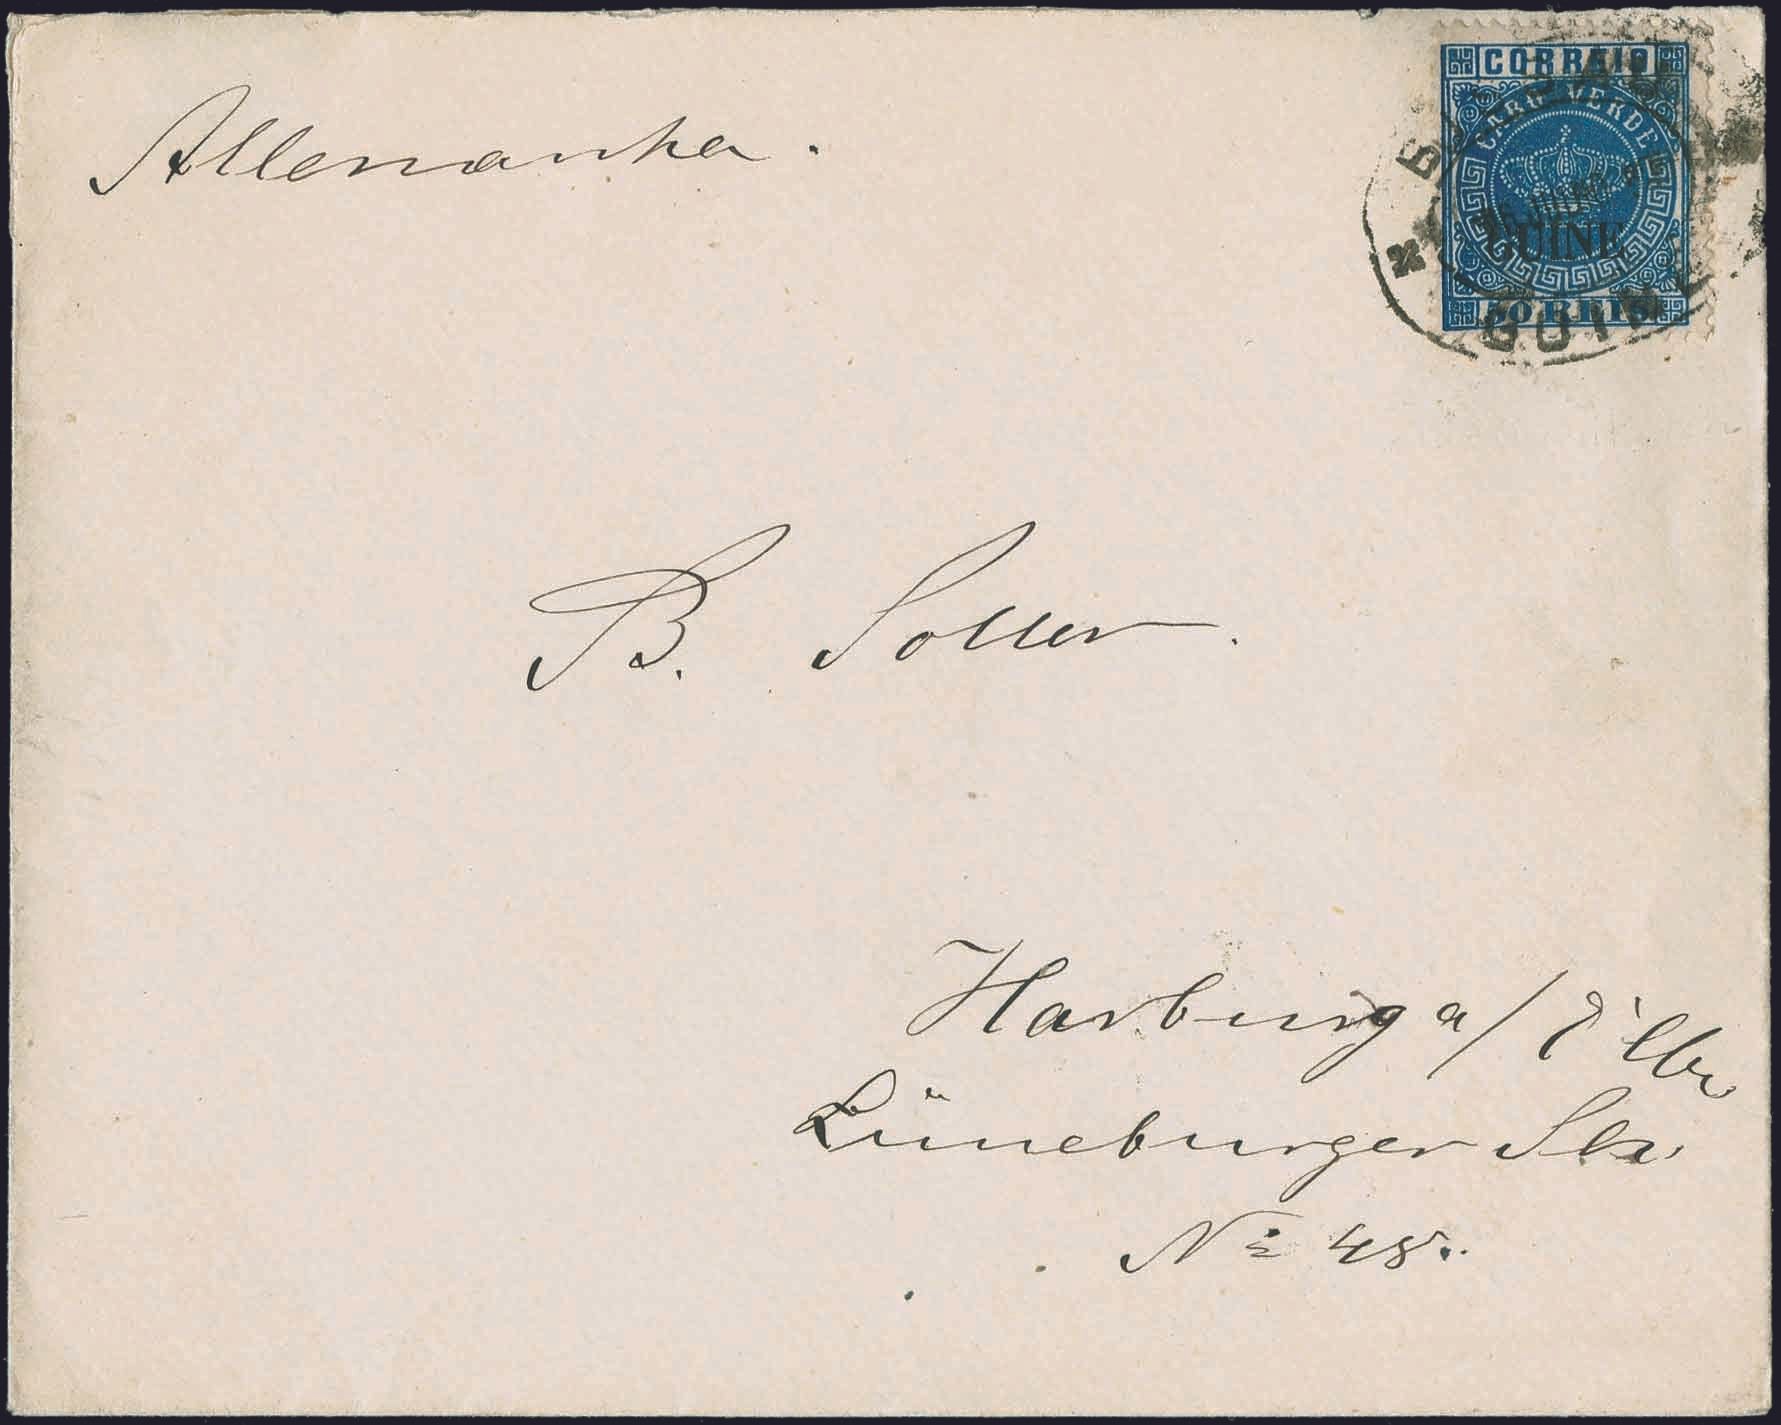 CORREIO
CABO VERDE
GUINÉ
50 REIS
GUINÉ
Allemanha.
B. Soller.
Harburg a/Elbe
Lüneburger Str.
No 48.